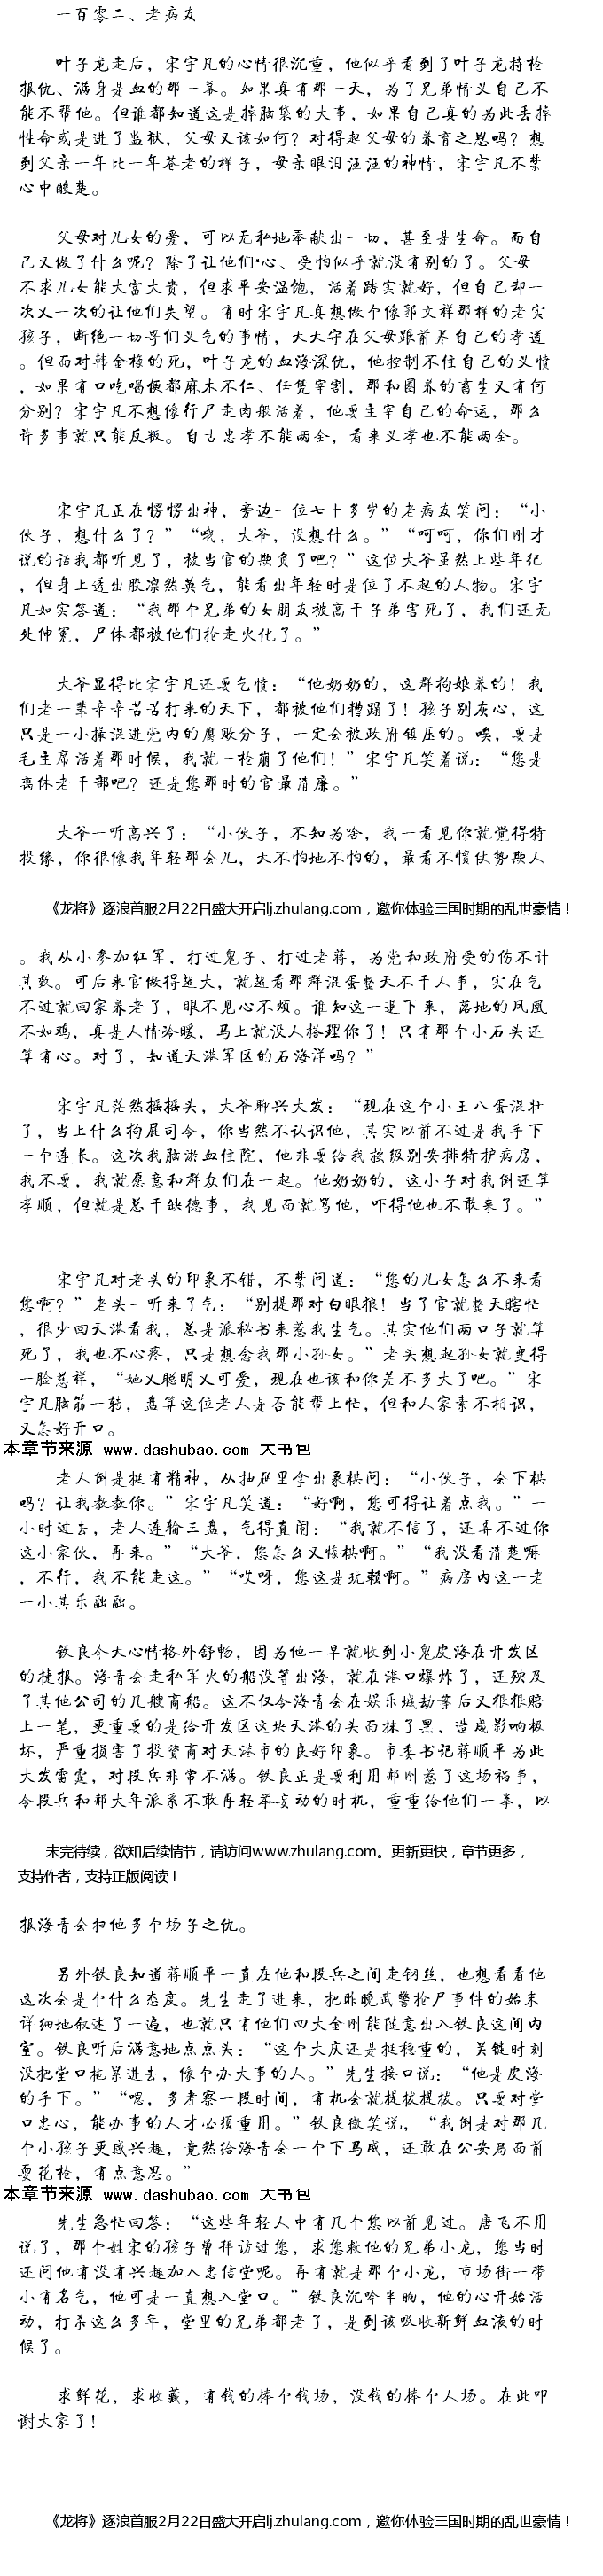 一百零二、老病友
叶子龙走后，宋宇凡的心情很沉重，他似乎看到了叶子龙持枪
报仇、满身是血的那一幕。如果真有那一天，为了兄弟情义自己不
能不帮他。但谁都知道这是掉脑袋的大事，如果自己真的为此丢掉
性命或是进了监狱，父母又该如何？对得起父母的养育之恩吗？想
到父亲一年比一年苍老的样子，母亲眼泪汪汪的神情，宋宇凡不禁
心中酸楚。
父母对儿女的爱，可以无私地奉献出一切，甚至是生命。而自
己又做了什么呢？除了让他们*心、受怕似乎就没有别的了。父母
不求儿女能大富大贵，但求平安温饱，活着踏实就好，但自己却一
次又一次的让他们失望。有时宋宇凡真想做个像郭文祥那样的老实
孩子，断绝一切哥们义气的事情，天天守在父母跟前尽自己的孝道
。但面对韩金梅的死，叶子龙的血海深仇，他控制不住自己的义愤
，如果有口吃喝便都麻木不仁、任凭宰割，那和圈养的畜生又有何
分别？宋宇凡不想像行尸走肉般活着，他要主宰自己的命运，那么
许多事就只能反叛。自古忠孝不能两全，看来义孝也不能两全。
宋宇凡正在愣愣出神，旁边一位七十多岁的老病友笑问：“小
伙子，想什么了？”“哦，大爷，没想什么。”“呵呵，你们刚才
说的话我都听见了，被当官的欺负了吧？”这位大爷虽然上些年纪
，但身上透出股凛然英气，能看出年轻时是位了不起的人物。宋宇
凡如实答道：“我那个兄弟的女朋友被高干子弟害死了，我们还无
处伸冤，尸体都被他们抢走火化了。”
大爷显得比宋宇凡还要气愤：“他奶奶的，这群狗娘养的！我
们老一辈辛辛苦苦打来的天下，都被他们糟蹋了！孩子别灰心，这
只是一小撮混进党内的腐败分子，一定会被政府镇压的。唉，要是
毛主席活着那时候，我就一枪崩了他们！”宋宇凡笑着说：“您是
离休老干部吧？还是您那时的官最清廉。”
大爷一听高兴了：“小伙子，不知为啥，我一看见你就觉得特
投缘，你很像我年轻那会儿，天不怕地不怕的，最看不惯仗势欺人
《龙将》逐浪首服2月22日盛大开启lj.zhulang.com，邀你体验三国时期的乱世豪情！
。我从小参加红军，打过鬼子、打过老蒋，为党和政府受的伤不计
其数。可后来官做得越大，就越看那群混蛋整天不干人事，实在气
不过就回家养老了，眼不见心不烦。谁知这一退下来，落地的凤凰
不如鸡，真是人情冷暖，马上就没人搭理你了！只有那个小石头还
算有心。对了，知道天港军区的石海洋吗？”
宋宇凡茫然摇摇头，大爷聊兴大发：“现在这个小王八蛋混壮
了，当上什么狗屁司令，你当然不认识他，其实以前不过是我手下
一个连长。这次我脑淤血住院，他非要给我按级别安排特护病房，
我不要，我就愿意和群众们在一起。他奶奶的，这小子对我倒还算
孝顺，但就是总干缺德事，我见面就骂他，吓得他也不敢来了。”
宋宇凡对老头的印象不错，不禁问道：“您的儿女怎么不来看
您啊？”老头一听来了气：“别提那对白眼狼！当了官就整天瞎忙
，很少回天港看我，总是派秘书来惹我生气。其实他们两口子就算
死了，我也不心疼，只是想念我那小孙女。”老头想起孙女就变得
一脸慈祥，“她又聪明又可爱，现在也该和你差不多大了吧。”宋
宇凡脑筋一转，盘算这位老人是否能帮上忙，但和人家素不相识，
又怎好开口。
本章节来源 www.dashubao.com 大书包
老人倒是挺有精神，从抽屉里拿出象棋问：“小伙子，会下棋
吗？让我教教你。”宋宇凡笑道：“好啊，您可得让着点我。”一
小时过去，老人连输三盘，气得直闹：“我就不信了，还弄不过你
这小家伙，再来。”“大爷，您怎么又悔棋啊。”“我没看清楚嘛
，不行，我不能走这。”“哎呀，您这是玩赖啊。”病房内这一老
一小其乐融融。
铁良今天心情格外舒畅，因为他一早就收到小鬼皮海在开发区
的捷报。海青会走私军火的船没等出海，就在港口爆炸了，还殃及
了其他公司的几艘商船。这不仅令海青会在娱乐城劫案后又狠狠赔
上一笔，更重要的是给开发区这块天港的头面抹了黑，造成影响极
坏，严重损害了投资商对天港市的良好印象。市委书记蒋顺平为此
大发雷霆，对段兵非常不满。铁良正是要利用郝刚惹了这场祸事，
令段兵和郝大年派系不敢再轻举妄动的时机，重重给他们一拳，以
未完待续，欲知后续情节，请访问www.zhulang.com。更新更快，章节更多，
支持作者，支持正版阅读！
报海青会扫他多个场子之仇。
另外铁良知道蒋顺平一直在他和段兵之间走钢丝，也想看看他
这次会是个什么态度。先生走了进来，把昨晚武警抢尸事件的始末
详细地叙述了一遍，也就只有他们四大金刚能随意出入铁良这间内
室。铁良听后满意地点点头：“这个大庆还是挺稳重的，关键时刻
没把堂口拖累进去，像个办大事的人。”先生接口说：“他是皮海
的手下。”“嗯，多考察一段时间，有机会就提拔提拔。只要对堂
口忠心，能办事的人才必须重用。”铁良微笑说，“我倒是对那几
个小孩子更感兴趣，竟然给海青会一个下马威，还敢在公安局面前
耍花枪，有点意思。”
本章节来源 www.dashubao.com 大书包
先生急忙回答：“这些年轻人中有几个您以前见过。唐飞不用
说了，那个姓宋的孩子曾拜访过您，求您救他的兄弟小龙，您当时
还问他有没有兴趣加入忠信堂呢。再有就是那个小龙，市场街一带
小有名气，他可是一直想入堂口。”铁良沉吟半晌，他的心开始活
动，打杀这么多年，堂里的兄弟都老了，是到该吸收新鲜血液的时
候了。
求鲜花，求收藏，有钱的捧个钱场，没钱的捧个人场。在此叩
谢大家了！
《龙将》逐浪首服2月22日盛大开启lj.zhulang.com，邀你体验三国时期的乱世豪情！